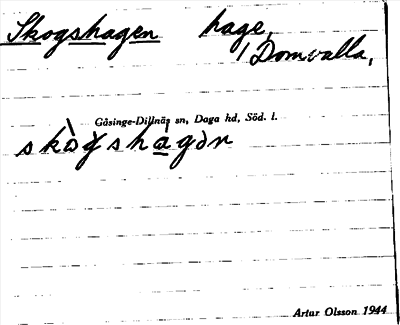 Skogshagen hage,
/Domvalla,
Gåsinge-Dillnäs sn, Daga hd, Söd. l.
skògshàgən
Artur Olsson 1944